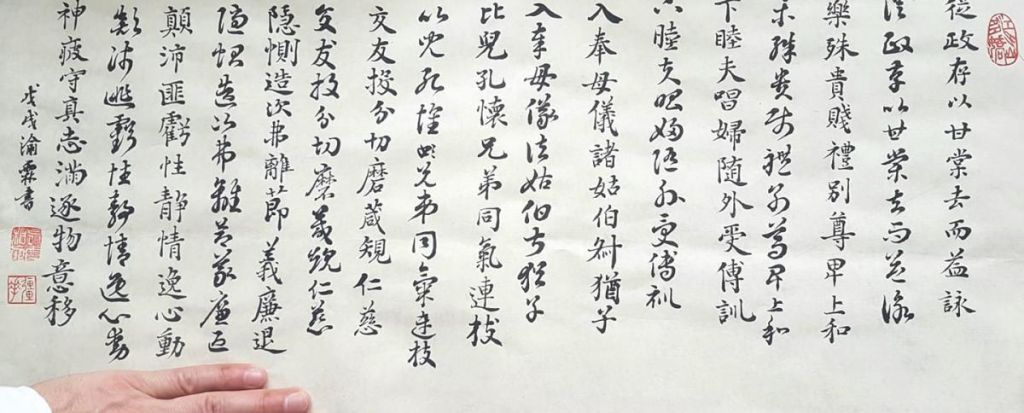 從政存以甘棠去而益詠
從政存以甘棠去而益詠
樂殊貴賤禮別尊卑上和
樂殊貴賤禮別尊卑上和
下睦夫唱婦隨外受傳訓
下睦夫唱婦隨外受傳訓
入奉母儀諸姑伯叔猶子
入奉母儀諸姑伯叔猶子
比兒孔懷兄弟同氣連枝
比兒孔懷兄弟同氣連枝
交友投分切磨箴規仁慈
交友投分切磨箴規仁慈
隱惻造次弗離節義廉退
隱惻造次弗離節義廉退
顛沛匪虧性靜情逸心動
顛沛匪虧性靜情逸心動
神疲守真志滿逐物意移
戊戌瀹霖書